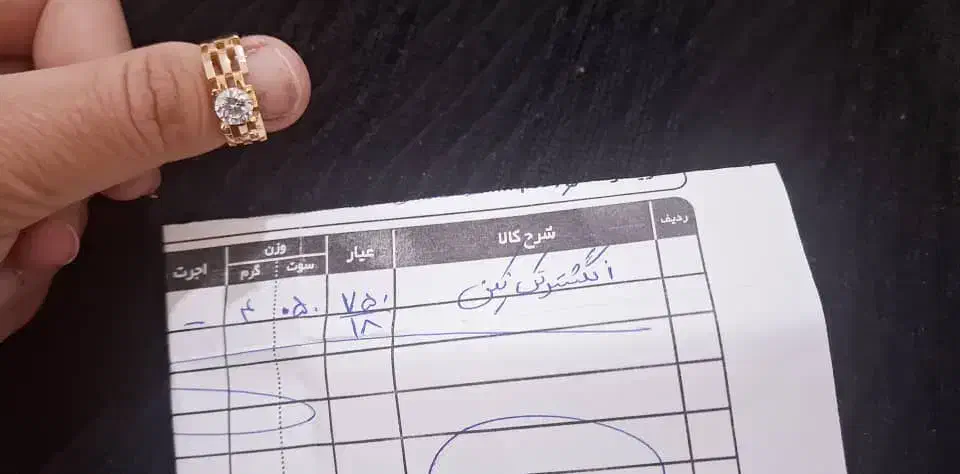 ردیف شرح کالا عیار وزن اجرت
سوت گرم
انگشتر تک نگین ۷۵۰ ۰۵۰ ۴ -
۱۸